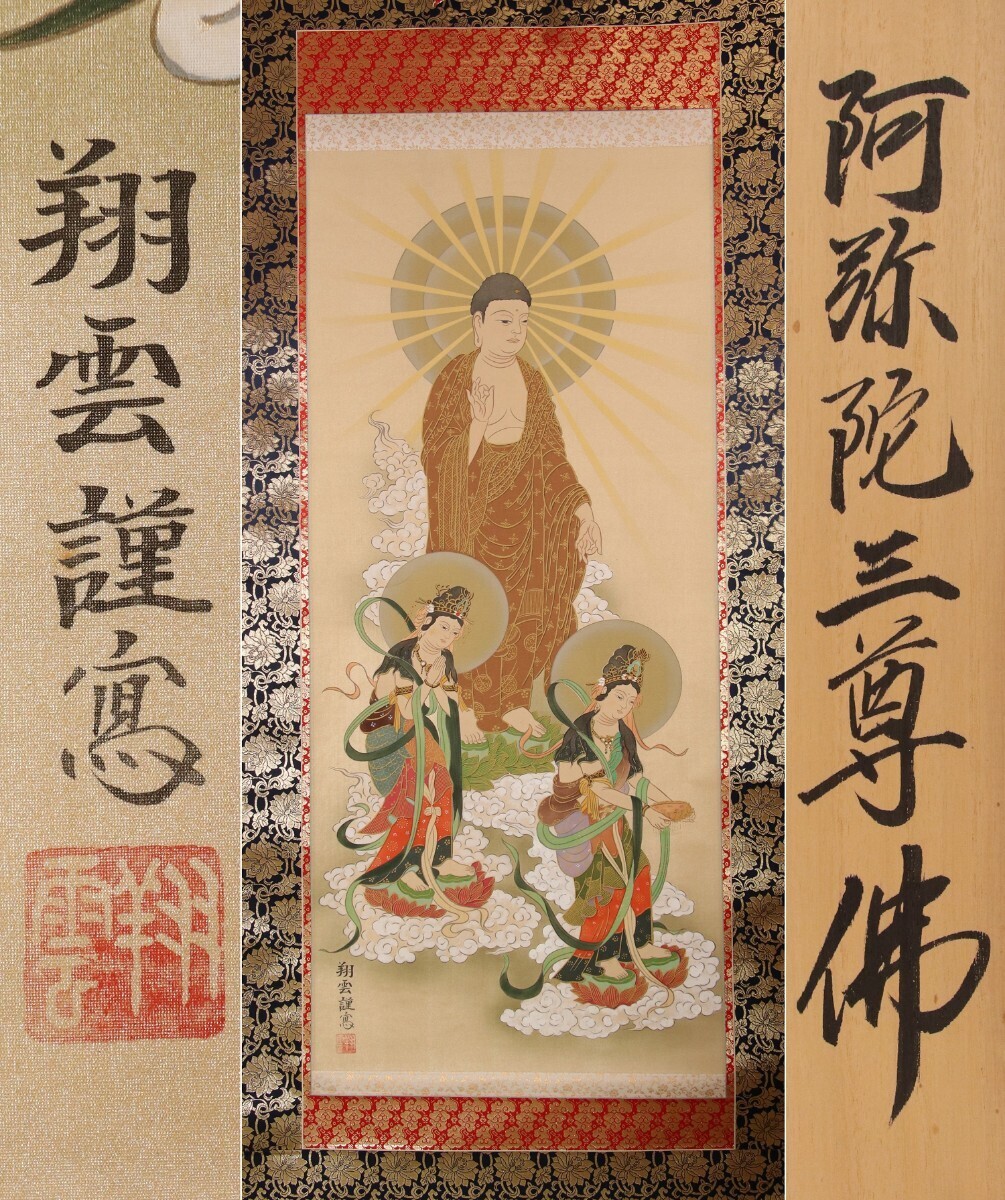 阿弥陀三尊佛
翔雲謹寫
翔雲
翔雲謹寫
翔雲